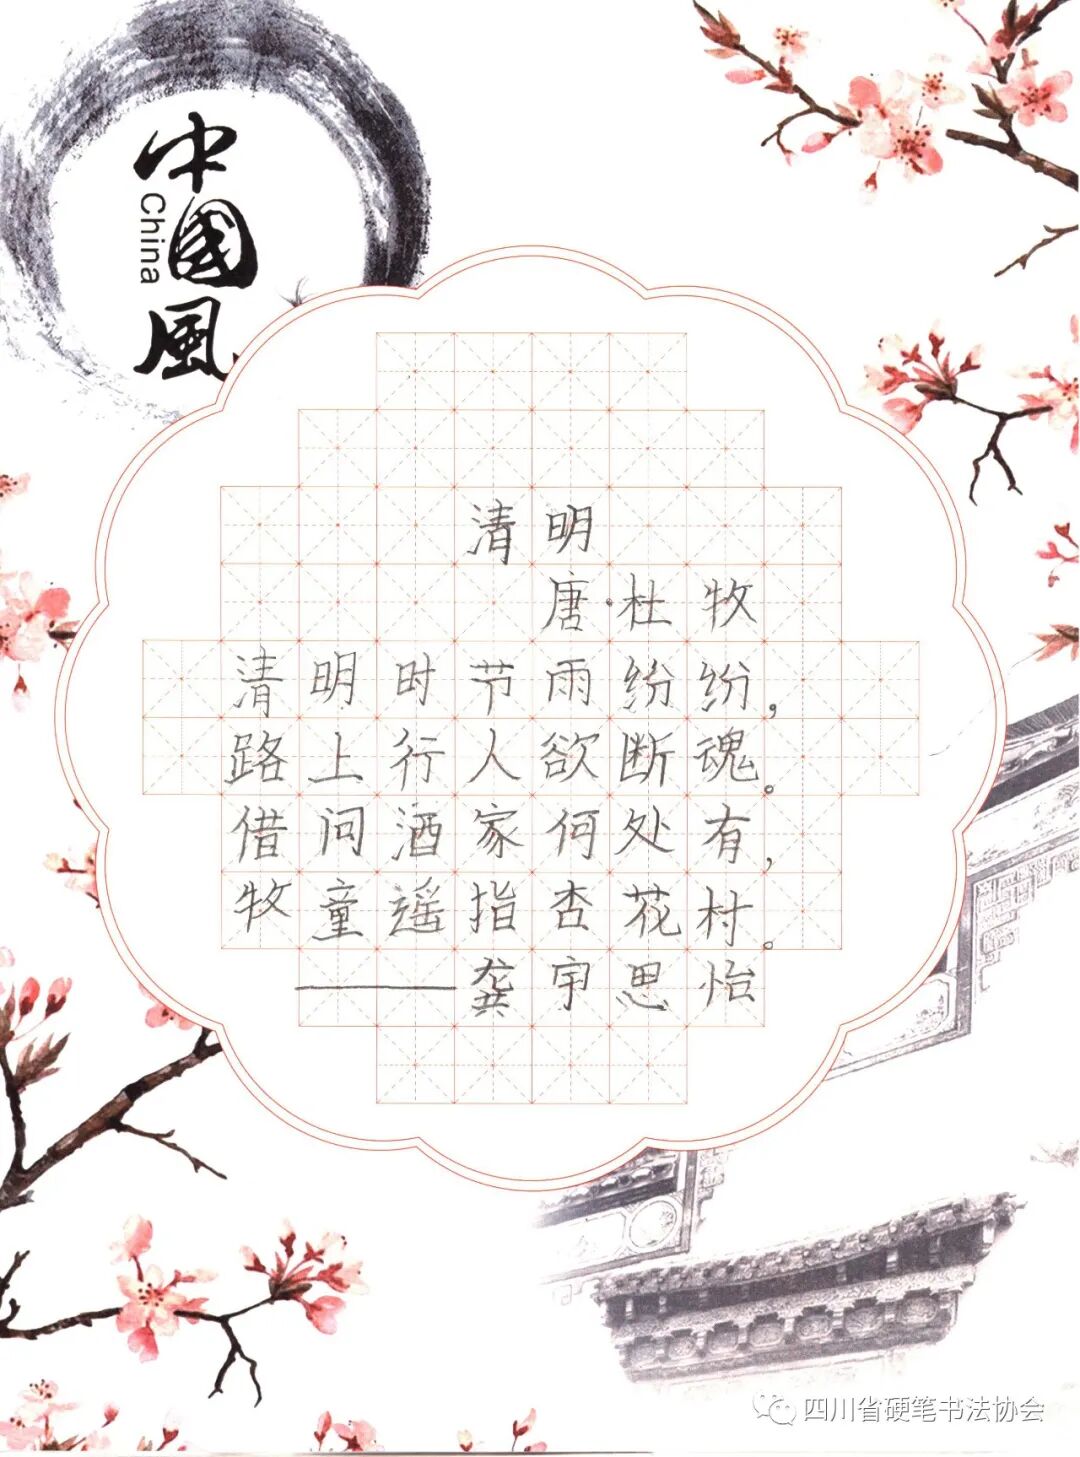 中國風
China
清明
唐·杜牧
清明时节雨纷纷，
路上行人欲断魂。
借问酒家何处有，
牧童遥指杏花村。
——龚宇思怡
四川省硬笔书法协会